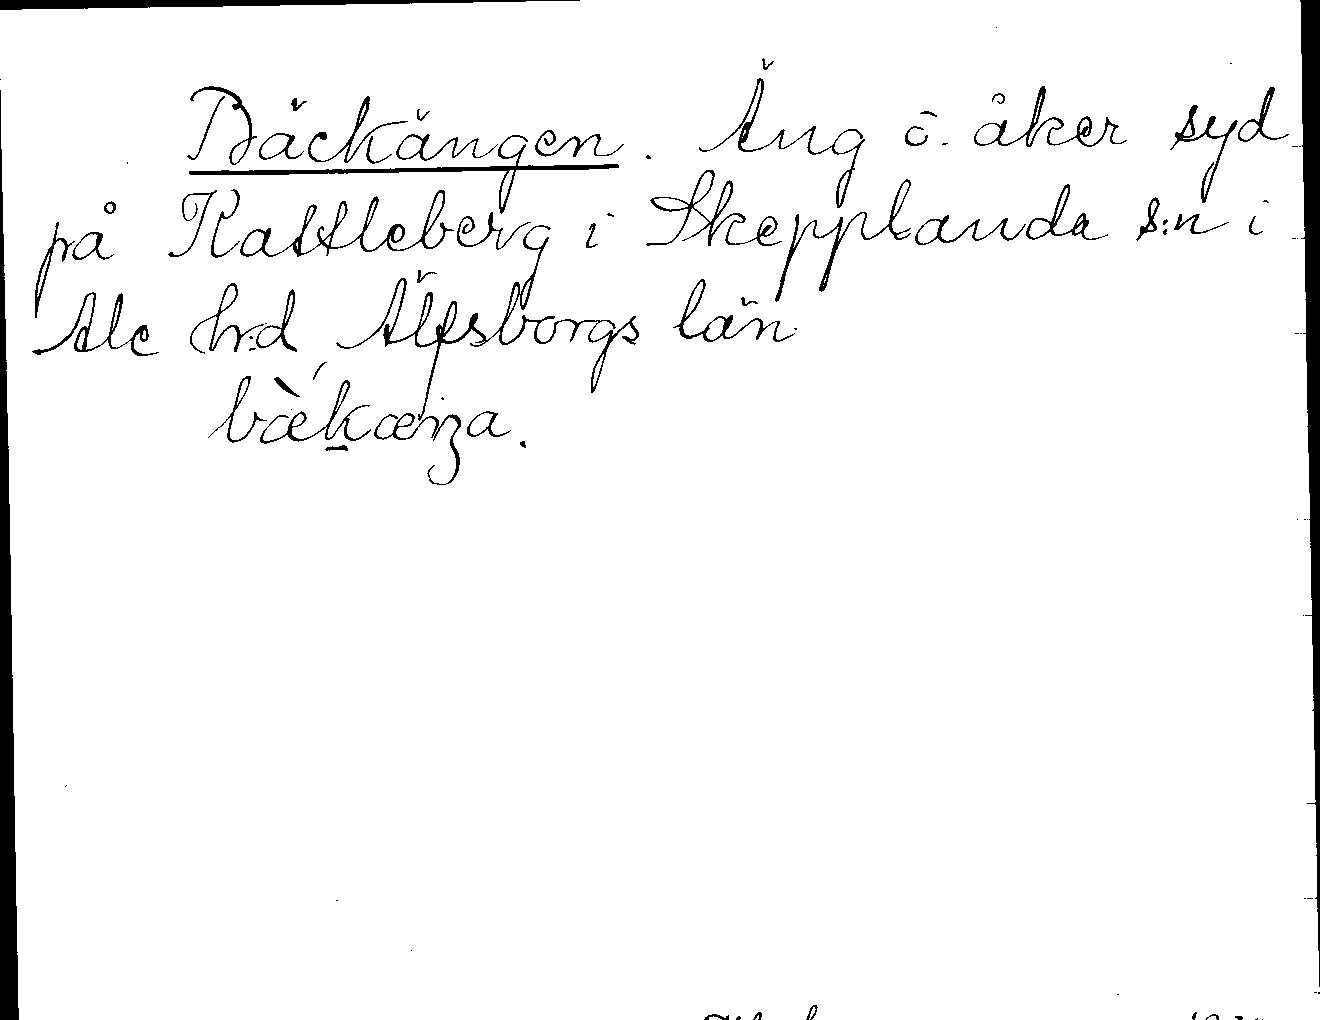 Bäckängen. Äng o. åker syd
på Kattleberg i Skepplanda s:n i
Ale hrd, Älfsborgs län
bæ̀kæŋa.